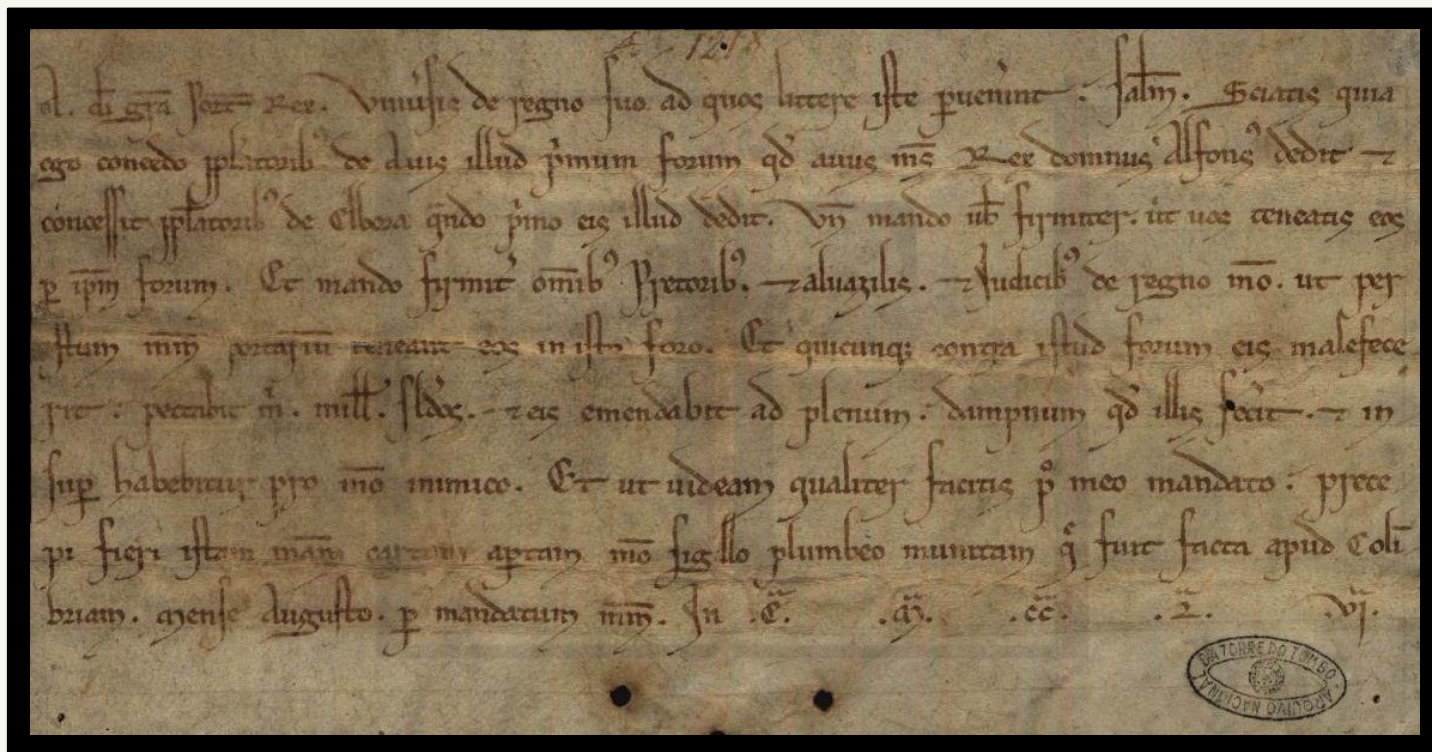 1218
A. di gra Port Rex. Vniuisis de regno suo ad quos littere iste peruenint. salm. Sciatis quia
ego concedo pplatorib9 de Auis illud pimum forum qd auus ms Rex domnus Alfons9 dedit ⁊
concessit pplatorib9 de Elbora qndo pimo eis illud dedit. Vn mando ub firmiter. ut uos teneatis eos
p ipm forum. Et mando firmit omib9 Pretorib9. ⁊ aluazilis. ⁊ Iudicib9 de regno mo. ut per
istum mm portarium teneant eos in isto foro. Et quicunq; contra istud forum eis malefece
rit. pectabit m. mill. sldos. ⁊ eis emendabit ad plenum. dampnum qd illis fecit. ⁊ in
sup habebitur pro mo inimico. Et ut uideam qualiter facitis p meo mandato. prece
pi fieri istam mam cartam aptam mo sigillo plumbeo munitam q fuit facta apud Coli
briam. Mense Augusto. p mandatum mm. In .E. .M. .CC. .L. .VI.
ARQUIVO NACIONAL DA TORRE DO TOMBO